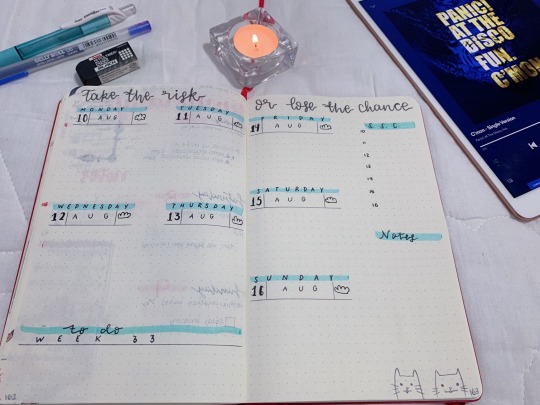 take the risk
MONDAY
10 AUG
TUESDAY
11 AUG
WEDNESDAY
12 AUG
THURSDAY
13 AUG
to do
WEEK 33
162
or lose the chance
FRIDAY
14 AUG
SATURDAY
15 AUG
SUNDAY
16 AUG
10
11
12
13
14
15
16
Notes
163
PANIC!
AT THE
DISCO
FUN.
C'MON
C'mon - Single Version